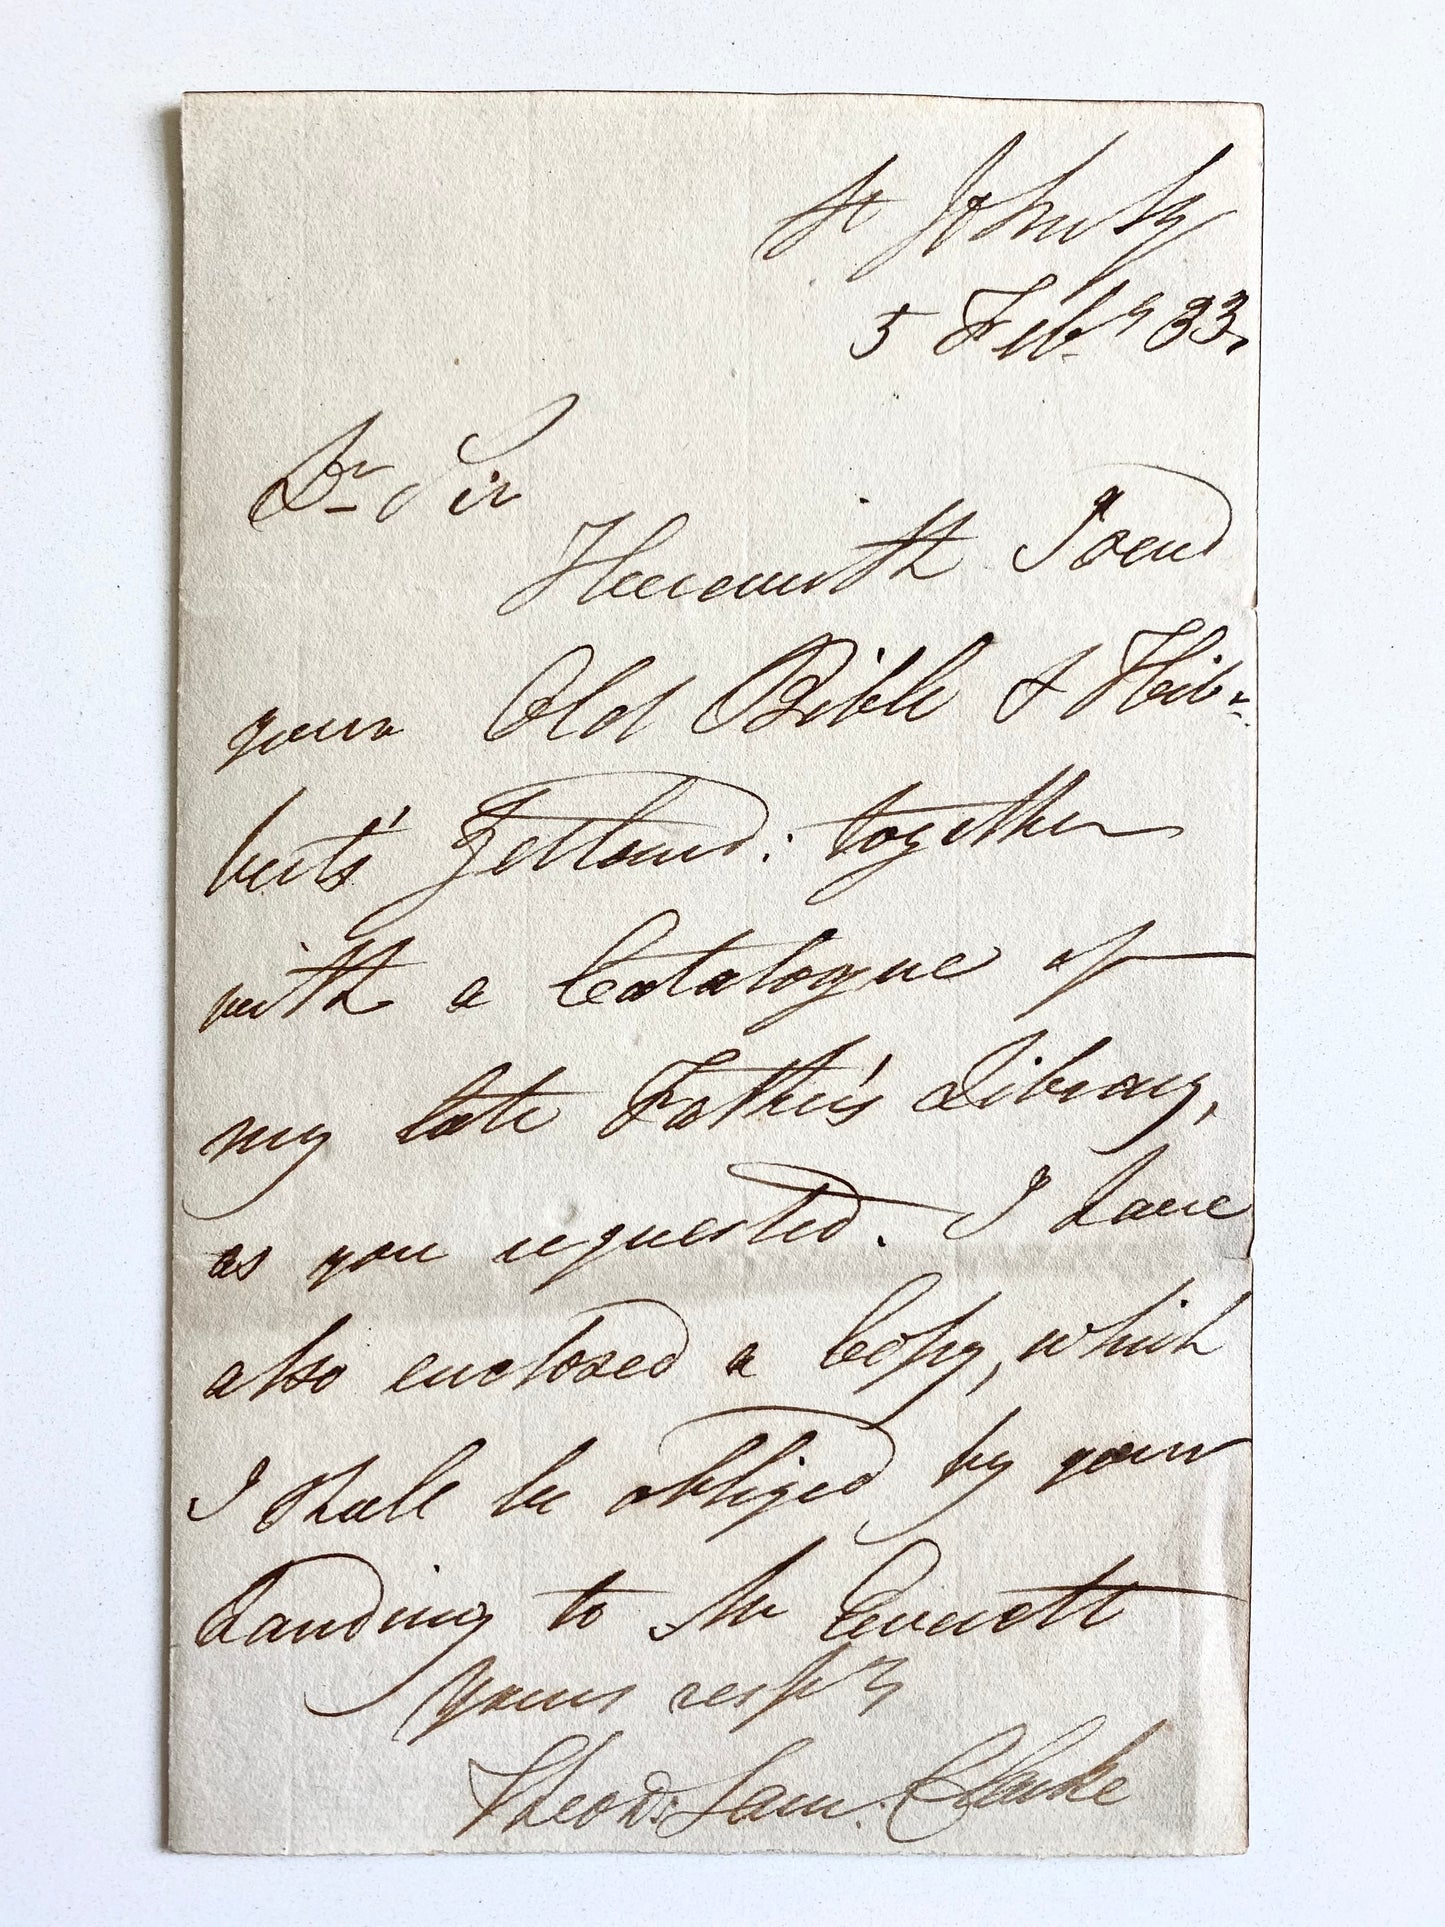 St John Sq
5 Feby 33.
Dr Sir
Herewith I send
your Old Bible & Hib-
berts' Zetland: together
with a Catalogue of
my late Father's Library,
as you requested. I have
also enclosed a Copy, which
I shall be obliged by your
handing to Mr Everett
yours respy
Theod: Sam. Clarke